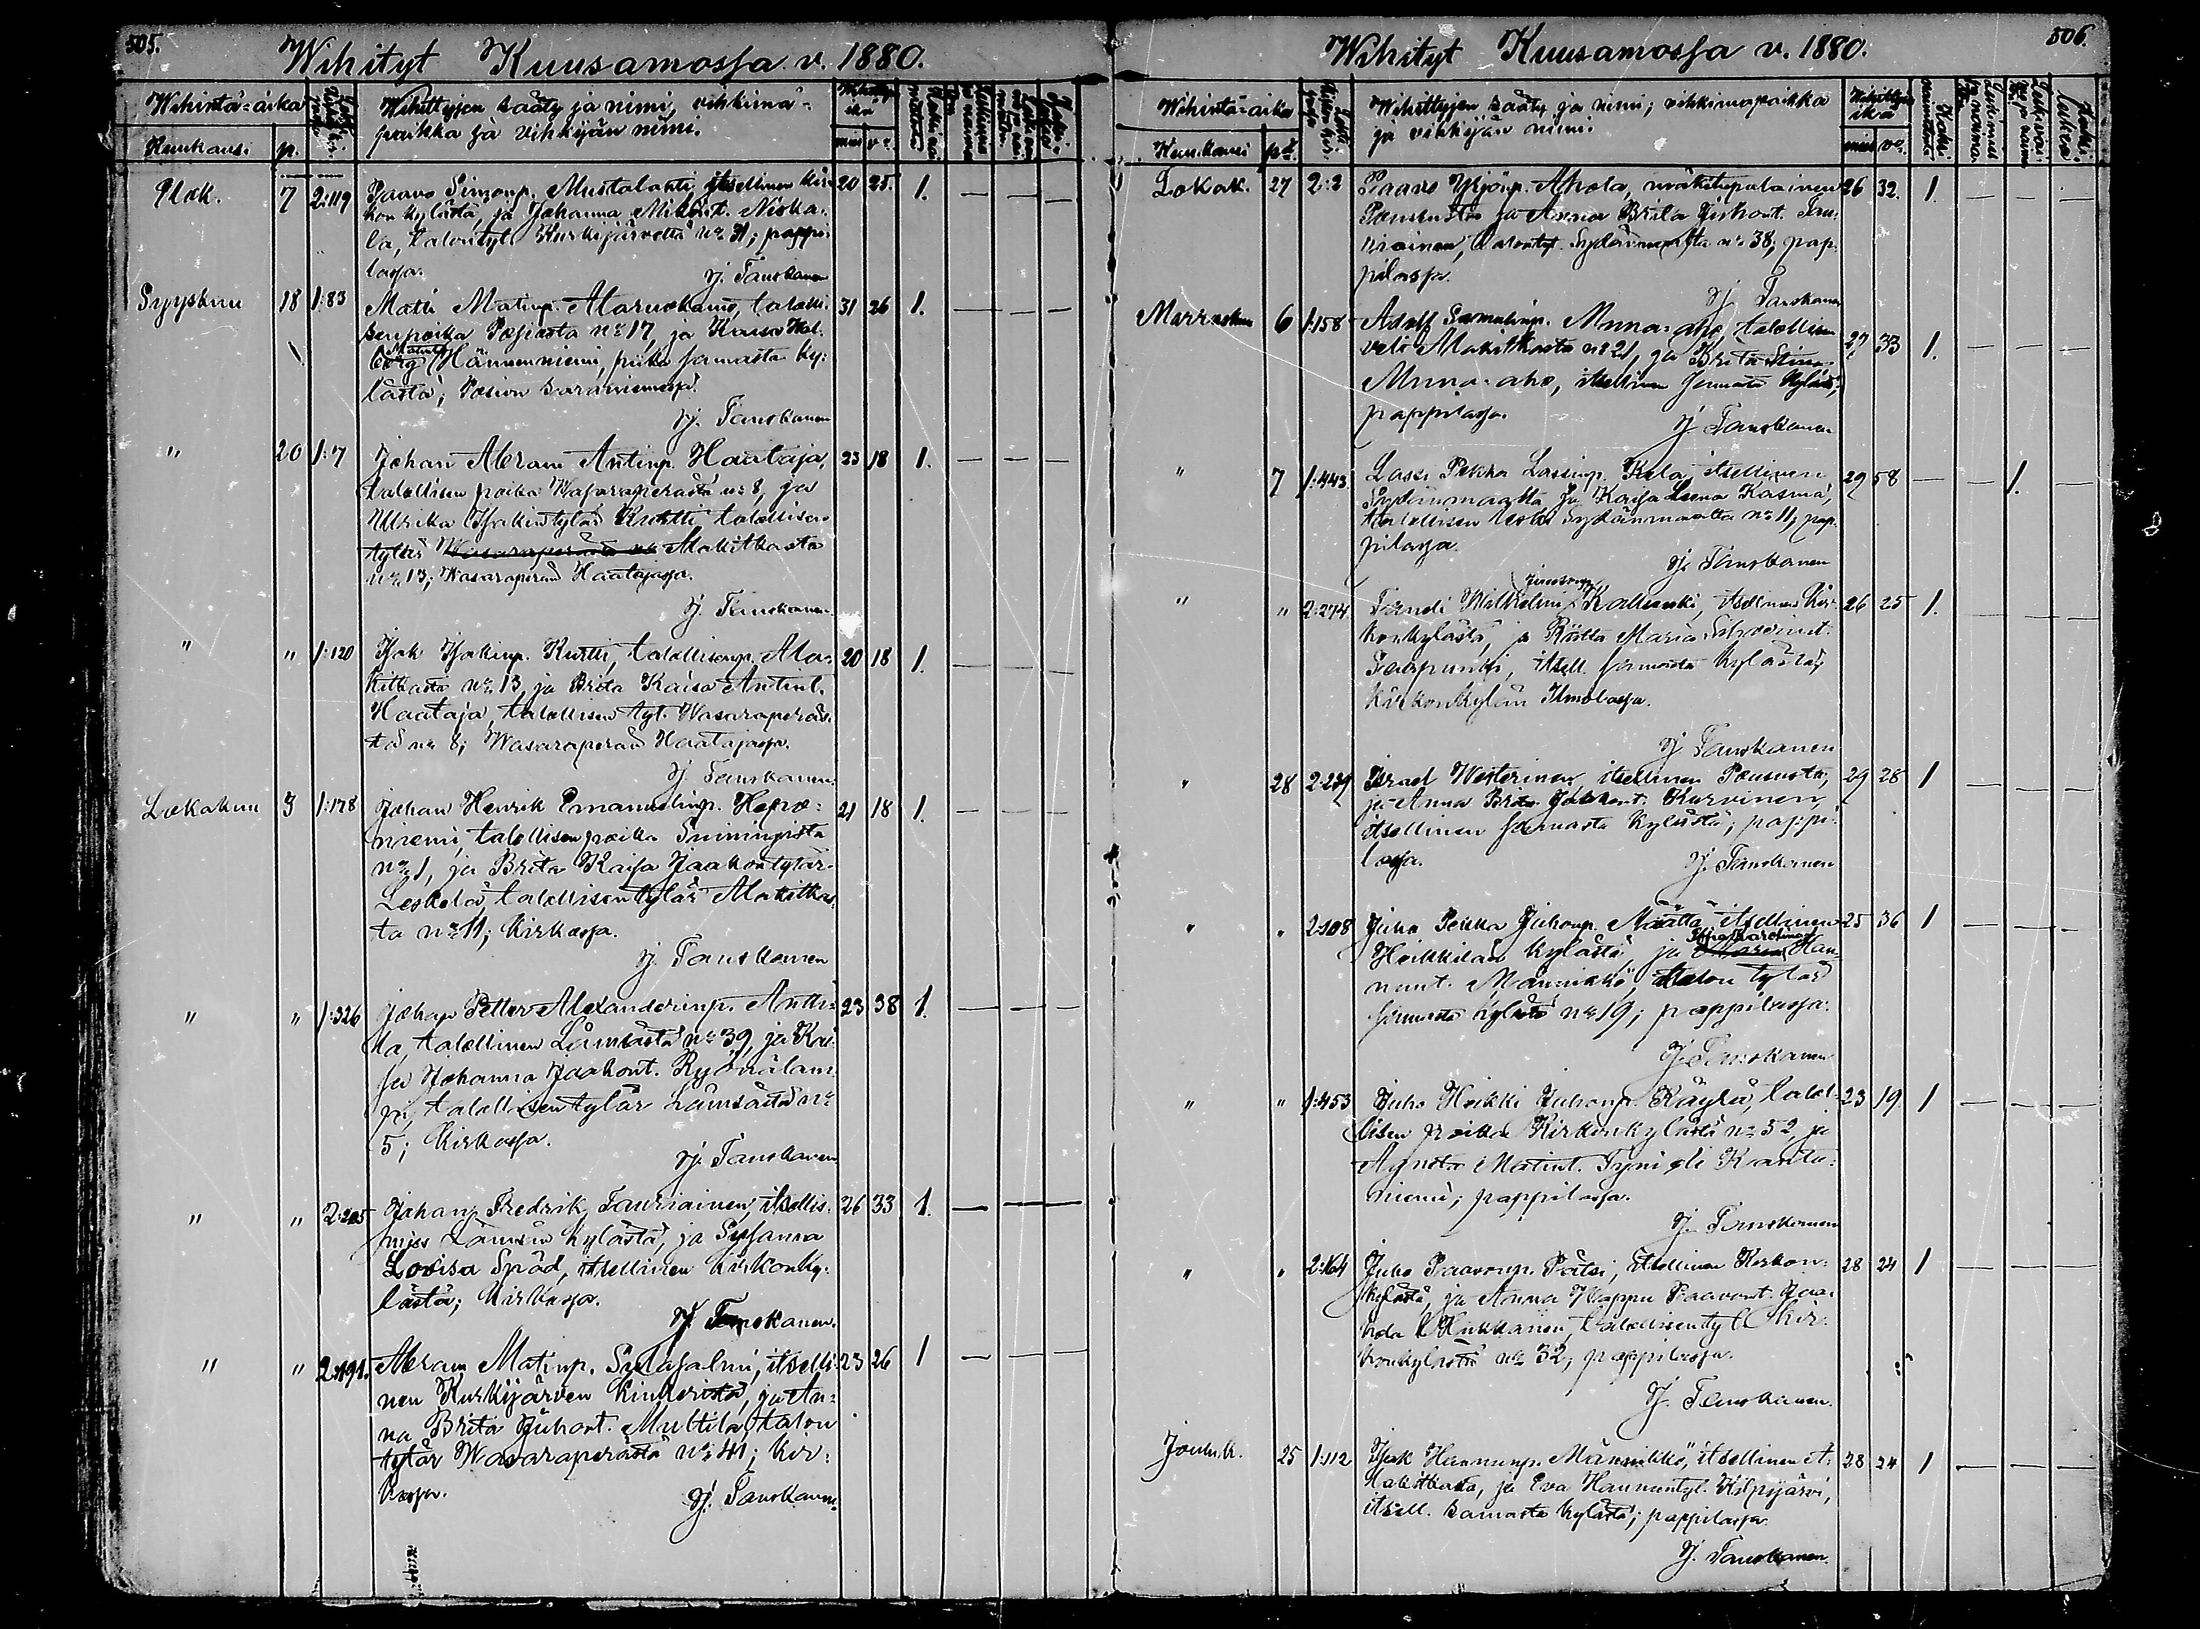 505.
Wihityt Kuusamossa v. 1880.
Wihintä-aika
Kuukausi p.
Wihittyjen sääty ja nimi, vihkimä-
paikka ja vihkijän nimi.
Elok. 7 2:119 Paavo Simonp. Mustalahti, itsellinen kir- 20 25. 1. — — —
kon kylästä, ja Johanna Mikont. Niska-
la, talontyt. Kurkijärveltä № 31; pappi-
lassa.
J. Tanskanen
Syyskuu 18 1:83 Matti Matinp. Alaruokamo, talolli- 31 26 1. — — —
senpoika Posiosta № 17, ja Kaisa Wal-
borg Matint. Hännenniemi, piika samasta ky-
lästä; Posion saarnamiesessa.
J. Tanskanen
" 20 1:7 Johan Abram Antinp. Haataja, 23 18 1. — — —
talollisen poika Wasaraperästä № 8, ja
Ulrika Isakintytär Kurtti, talollisen
tytär Wasaraperästä № Alakitkasta
№ 13; Wasaraperän Haatajassa.
J. Tanskanen
" " 1:120 Isak Isakinp. Kurtti, talollisenp. Ala- 20 18 1. — — —
kitkasta № 13, ja Brita Kaisa Antint.
Haataja, talollisen tyt. Wasaraperäs-
tä № 8; Wasaraperän Haatajassa.
J. Tanskanen
Lokakuu 3 1:178 Johan Henrik Emanuelinp. Hepo- 21 18 1. — — —
niemi, talollisen poika Suiningistä
№ 1, ja Brita Kaisa Jaakontytär
Leskelä, talollisen tytär Alakitkas-
ta № 11; kirkossa.
J. Tanskanen
" " 1:326 Johan Petter Alexanderinp. Antti- 23 38 1. — — —
la, talollinen Lämsästä № 39, ja Kai-
sa Johanna Jaakont. Ryönälam-
pi, talollisen tytär Lämsästä №
5; kirkossa.
J. Tanskanen
" " 2:205 Johan Fredrik Tauriainen, itsellis- 26 33 1. — — —
mies Lämsän kylästä, ja Susanna
Lovisa Späd, itsellinen kirkonky-
lästä; kirkossa.
J. Tanskanen.
" " 2:191. Abram Matinp. Sulasalmi, itselli- 23 26 1 — — —
nen Kurkijärven kinkeristä, ja An-
na Brita Juhont. Multila, talon
tytär Wasaraperästä № 41; kir-
kossa.
J. Tanskanen.
506.
Wihityt Kuusamossa v. 1880.
Wihintä-aika
Kuukausi
Wihittyjen sääty ja nimi; vihkimapaikka
ja vihkijän nimi.
Lokak. 27 2:2 Paavo Yrjönp. Ahola, mökitupalainen 26 32. 1. — — —
Poussusta ja Anna Brita Juhont. Tau-
riainen, talontyt. Sydänmaasta № 38; pap-
pilassa.
J. Tanskanen
Marraskuu 6 1:158 Adolf Samulinp. Murra-aho, talollisen 27 33 1. — — —
veli Alakitkasta № 21, ja Brita Stina
Murra-aho, itsellinen samasta kylästä;
pappilassa.
J. Tanskanen
" 7 1:443 Lassi Pekka Lassinp. Kela, itsellinen 29 58 — — 1. —
Sydänmaalta ja Kaisa Leena Kasma,
talollisen leski Sydänmaalta № 11; pap-
pilassa.
J. Tanskanen
" " 2:274 Fandi Wilhelmi Kallunki, itsellinen kir- 26 25 1.
konkylästä, ja Reetta Maria
itsell. samasta kylästä;
kirkonkylän
J. Tanskanen
" 28 2:239 Israel Westerinen, itsellinen Poussusta, 29 28 1 — — —
ja Anna Brita Jaakont. Kurvinen,
itsellinen samasta kylästä; pappi-
lassa.
J. Tanskanen
" " 2:108 Juho Pekka Juhonp. Määttä itsellinen 25 36 1 — — —
Heikkilän kylästä, ja Maria Sofia Karolina Han-
nunt. Männikkö, talon tytär
samasta kylästä № 19; pappilassa.
J. Tanskanen
" " 1:453 Juho Heikki Juhonp. Käylä, talol- 23 19 1 — — —
lisen poika Kirkonkylästä № 52, ja
Agneta Matint. Tyni eli Kanta-
niemi; pappilassa.
J. Tanskanen
" " 2:164 Juho Paavonp. Pätsi, itsellinen Kirkon- 28 24 1 — — —
kylästä, ja Anna Wappu Paavont.
Heikkinen, talollisen tyt. Kir-
konkylästä № 32; pappilassa.
J. Tanskanen.
Jouluk. 25 1:112 Isak Hannunp. Männikkö, itsellinen A- 28 24 1 — — —
lakitkasta, ja Eva Hannuntyt. Kilpijärvi,
itsell. samasta kylästä; pappilassa.
J. Tanskanen.